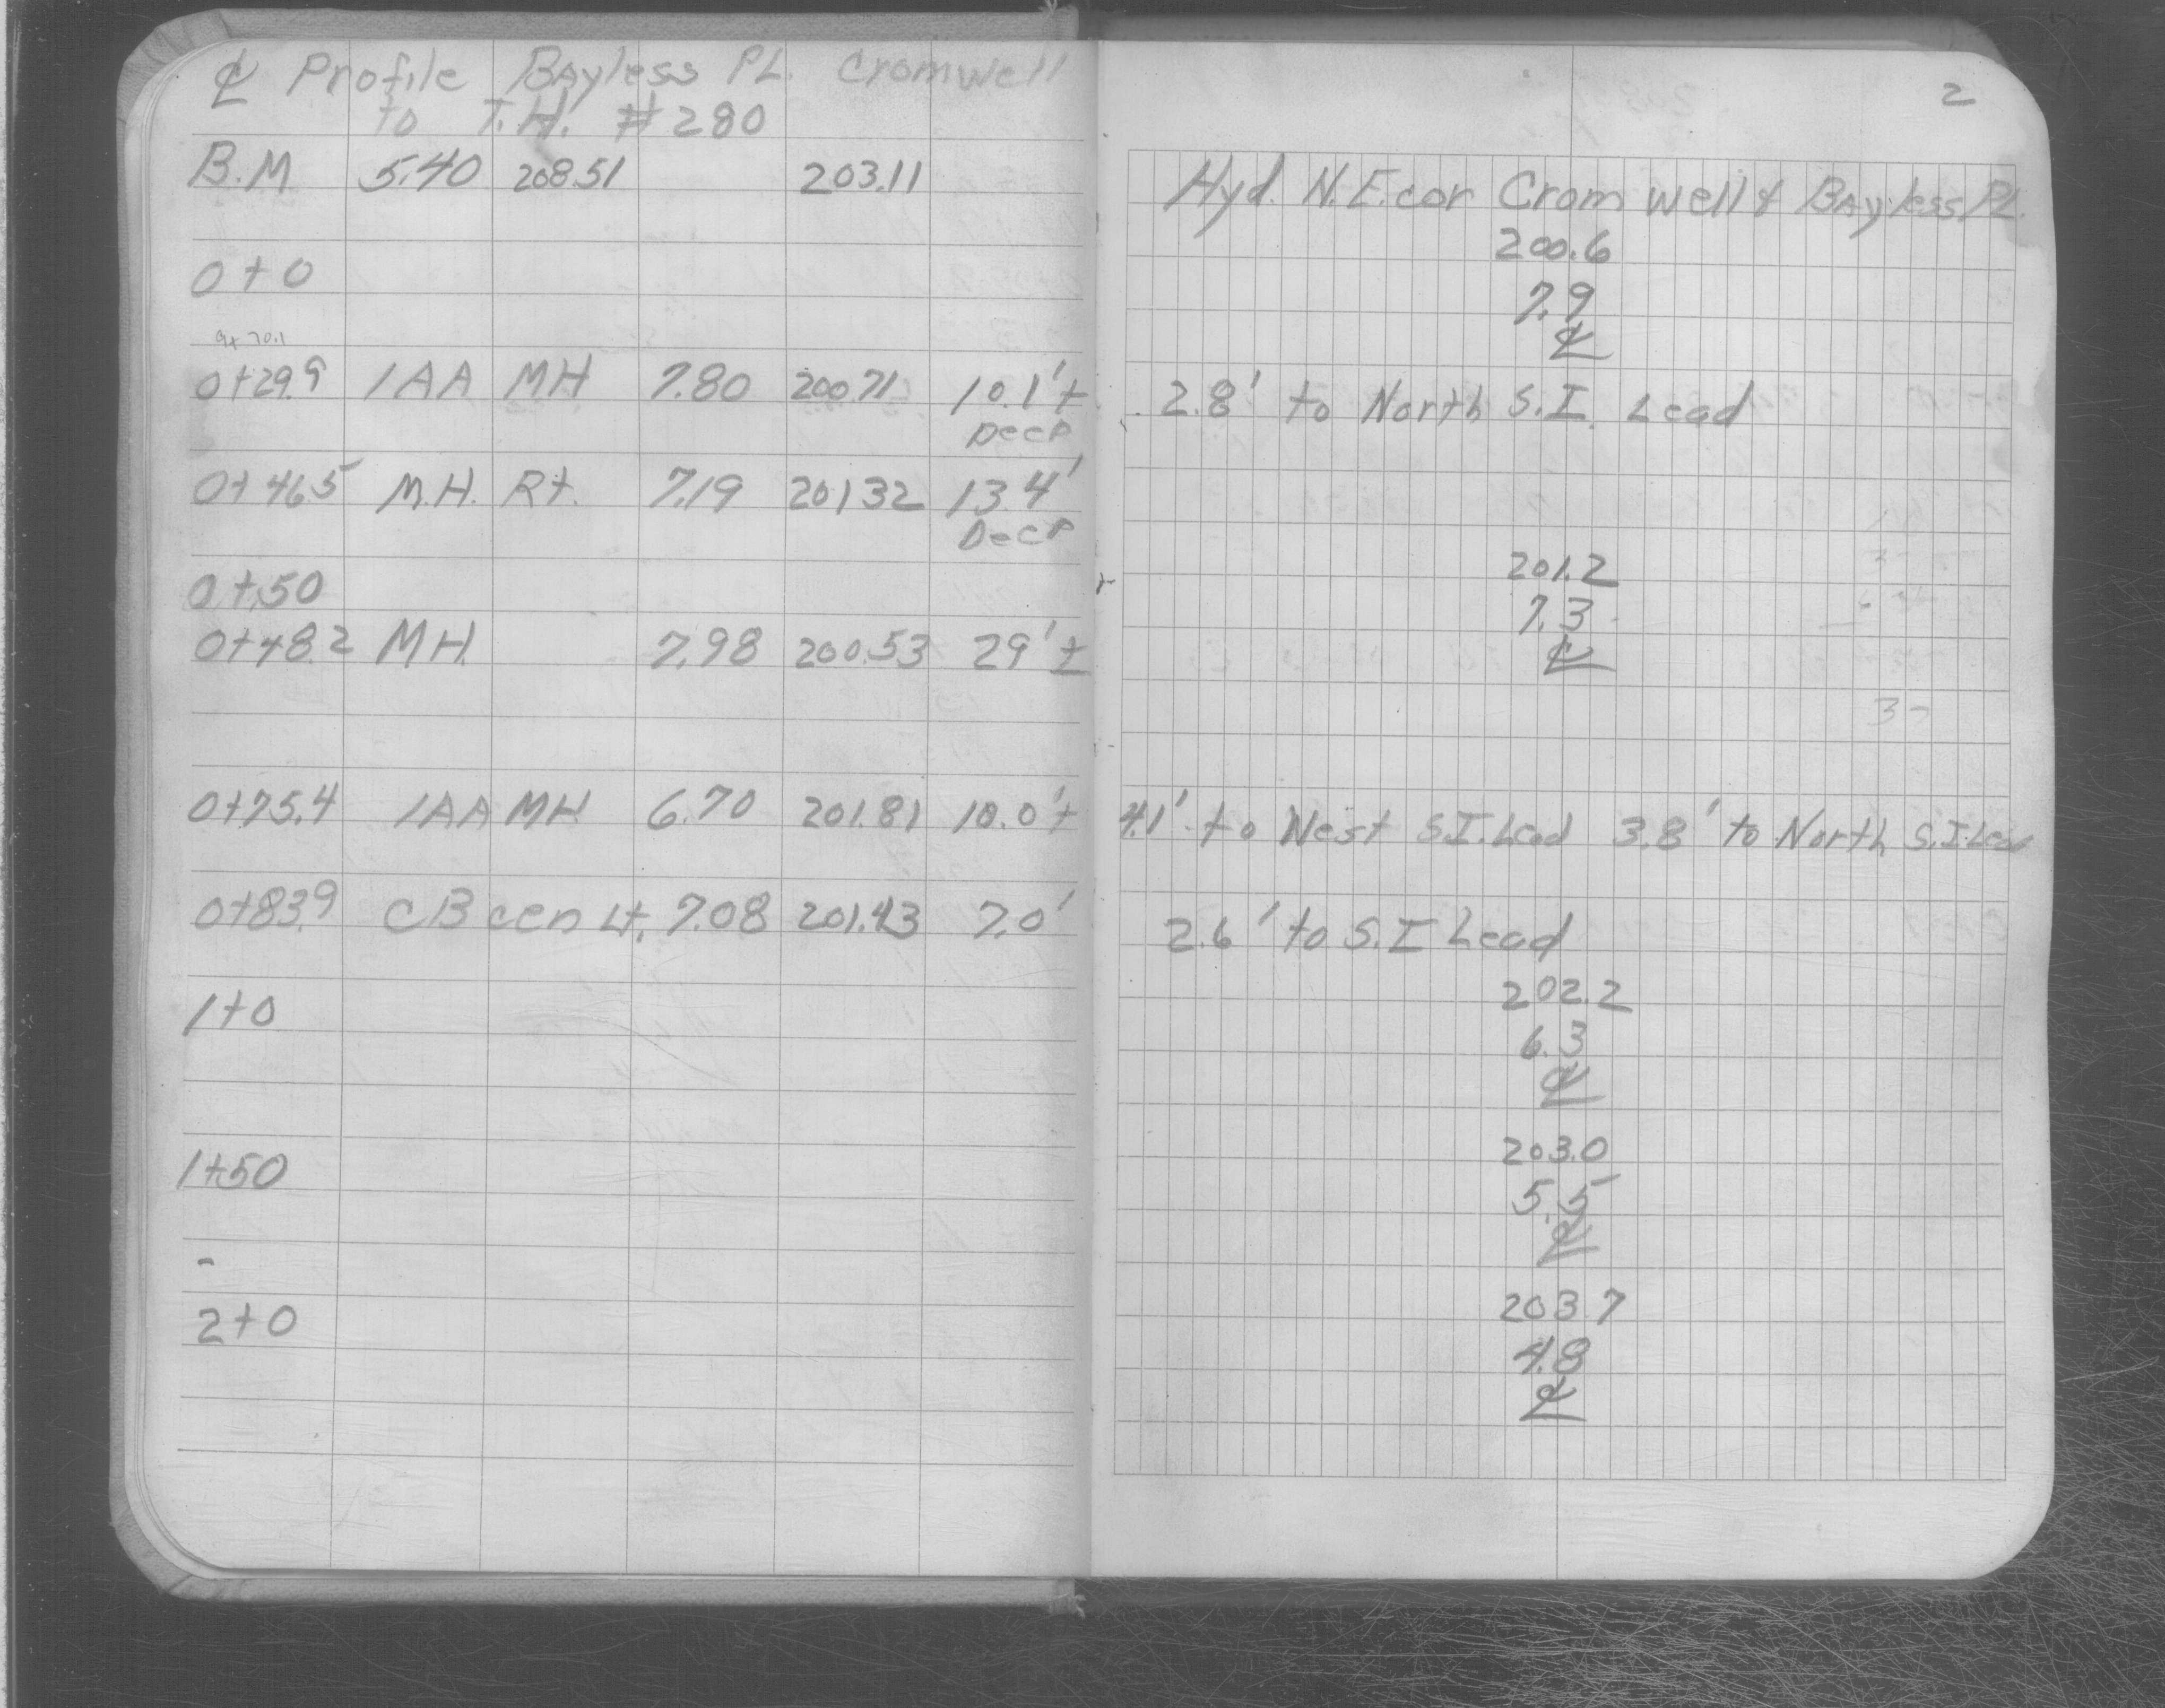 ℄ Profile Bayless PL. Cromwell
to T.H. #280
2
B.M 5.40 208.51 203.11
Hyd. N.E. cor Cromwell & Bayless PL.
200.6
0+0
7.9
℄
0+29.9 1AA MH 7.80 200.71 10.1'±
Deep
2.8' to North S.I. Lead
0+46.5 M.H. Rt. 7.19 201.32 13.4'
Deep
0+50
201.2
7.3
℄
0+48.2 MH. 7.98 200.53 29'±
0+75.4 1AA MH 6.70 201.81 10.0'±
4.1' to West S.I. Lead 3.8' to North S.I. Lead
0+83.9 CB cen Lt. 7.08 201.43 7.0'
2.6' to S.I Lead
202.2
1+0
6.3
℄
203.0
1+50
5.5
℄
-
203.7
2+0
4.8
℄